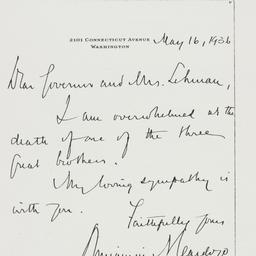 2101 Connecticut Avenue
Washington
May 16, 1936
Dear Governor and Mrs. Lehman,
I am overwhelmed at the
death of one of the three
great brothers.
My loving sympathy is
with you.
Faithfully yours
Benjamin N. Cardozo